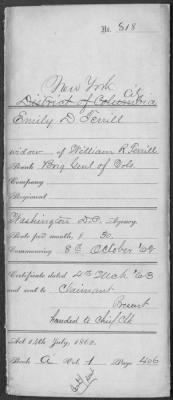 No. 818
New York City
District of Columbia
Emily D Terrill
widow of William R. Terrill
Rank Brig Genl of Vols.
Company
Regiment
Washington D.C. Agency.
Rate per month, $ 30.
Commencing 8th October '62
Certificate dated 4th Mch '63
and sent to Claimant
Present
handed to Chief Clk
Act 14th July, 1862.
Book A Vol. 1 Page 406